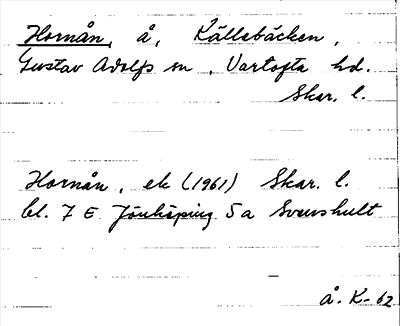 Hornån, å, Källebäcken,
Gustav Adolfs sn, Vartofta hd.
Skar. l.
Hornån, ek (1961) Skar. l.
bl. 7 E Jönköping 5a Svenshult
å. K-62